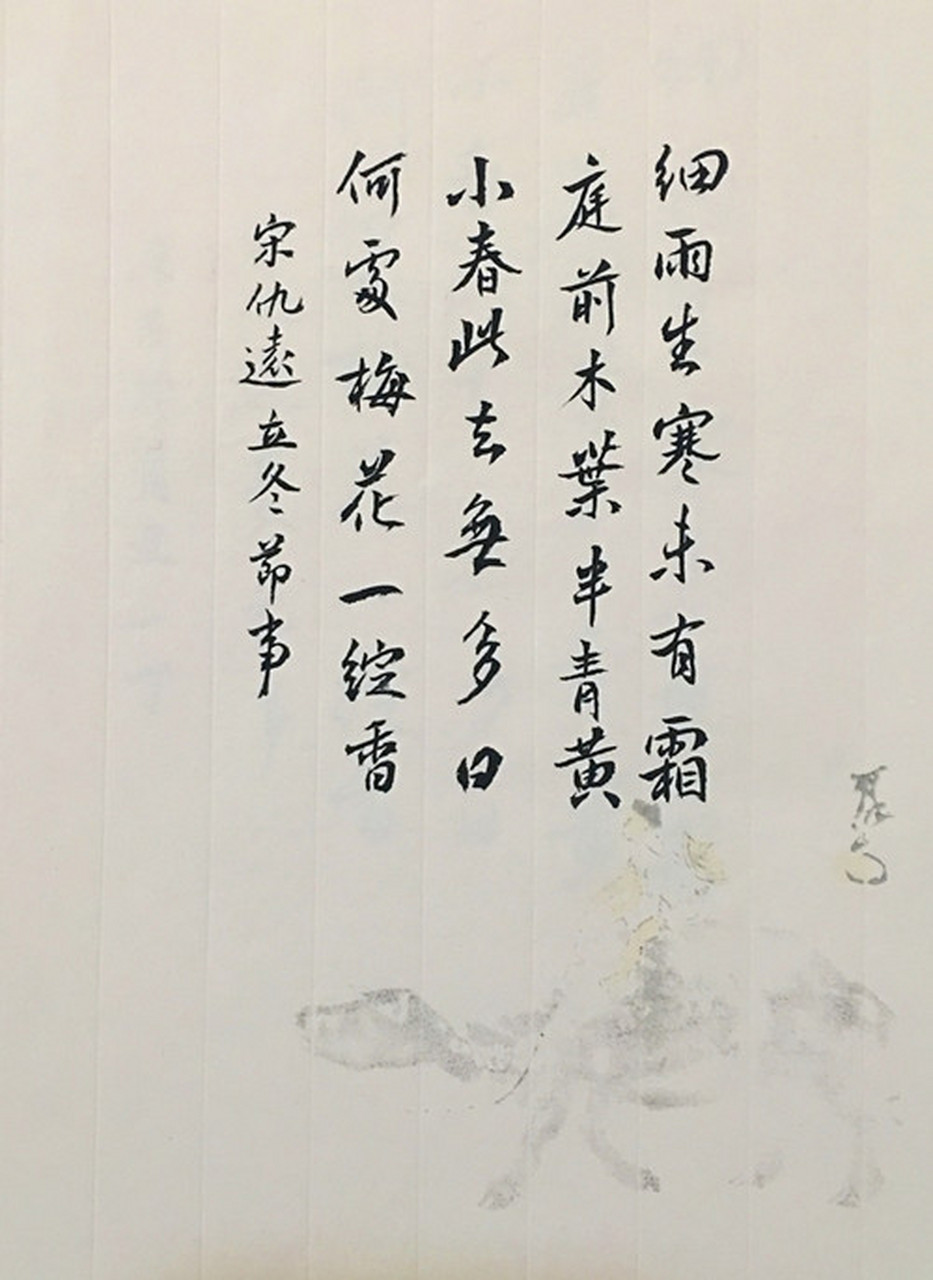 細雨生寒未有霜
庭前木葉半青黃
小春此去無多日
何處梅花一綻香
宋仇遠立冬節事